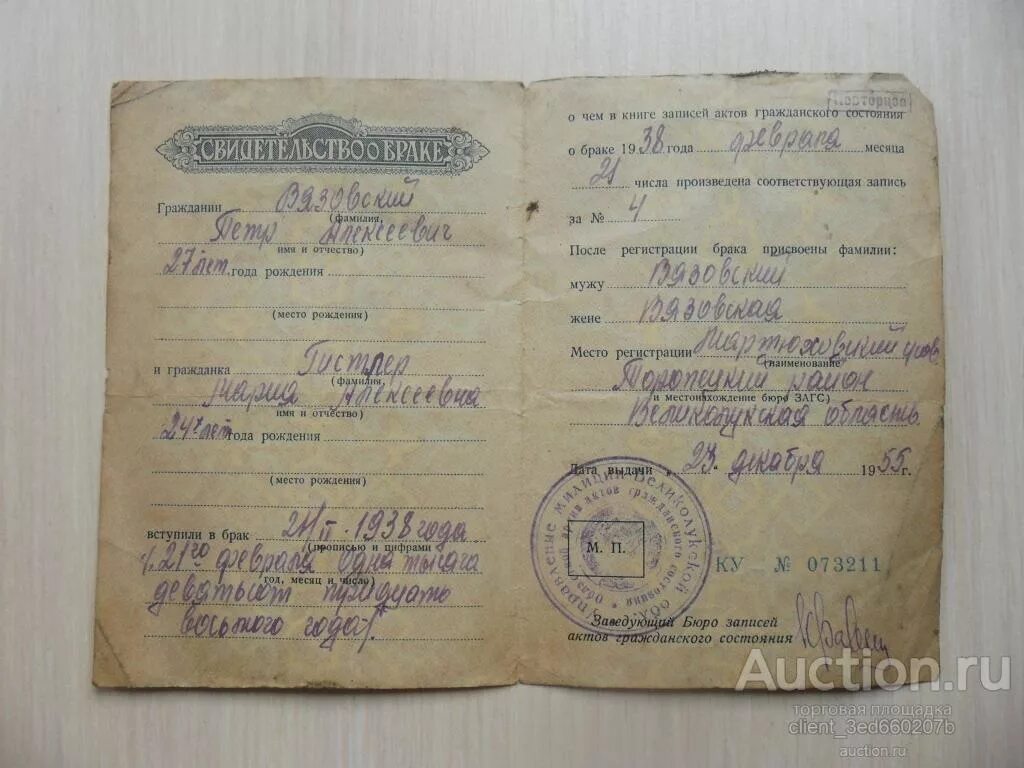 СВИДЕТЕЛЬСТВО О БРАКЕ
Гражданин Вязовский
(фамилия,
Петр Алексеевич
имя и отчество)
27 лет года рождения
(место рождения)
и гражданка Гистлер
(фамилия,
Мария Алексеевна
имя и отчество)
24 лет года рождения
(место рождения)
вступили в брак 21/II-1938 года
(прописью и цифрами
/:21го февраля одна тысяча
год, месяц и число)
девятьсот тридцать
восьмого года/:
о чем в книге записей актов гражданского состояния
о браке 1938 года февраля месяца
21 числа произведена соответствующая запись
за № 4
После регистрации брака присвоены фамилии:
мужу Вязовский
жене Вязовская
Место регистрации Мартюховский
(наименование
Торопецкий район
и местонахождение бюро ЗАГС)
Великолукская область
Дата выдачи „23" декабря 1955 г.
М. П.
КУ № 073211
Заведующий Бюро записей
актов гражданского состояния
Auction.ru
торговая площадка
client_3ed660207b
auction.ru